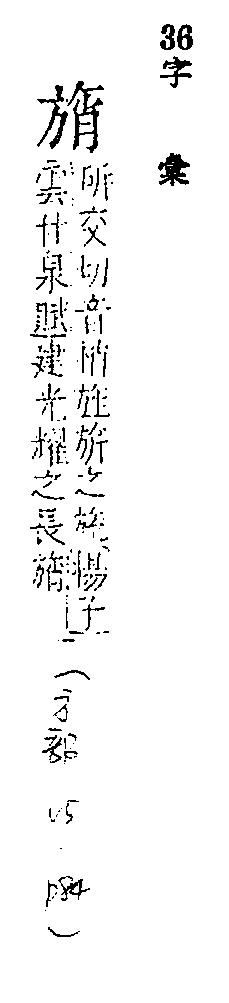 36字彙
旓
所交切音梢旌旂之旒揚子
雲甘泉賦建光耀之長旓
(方部 v5 . p84)